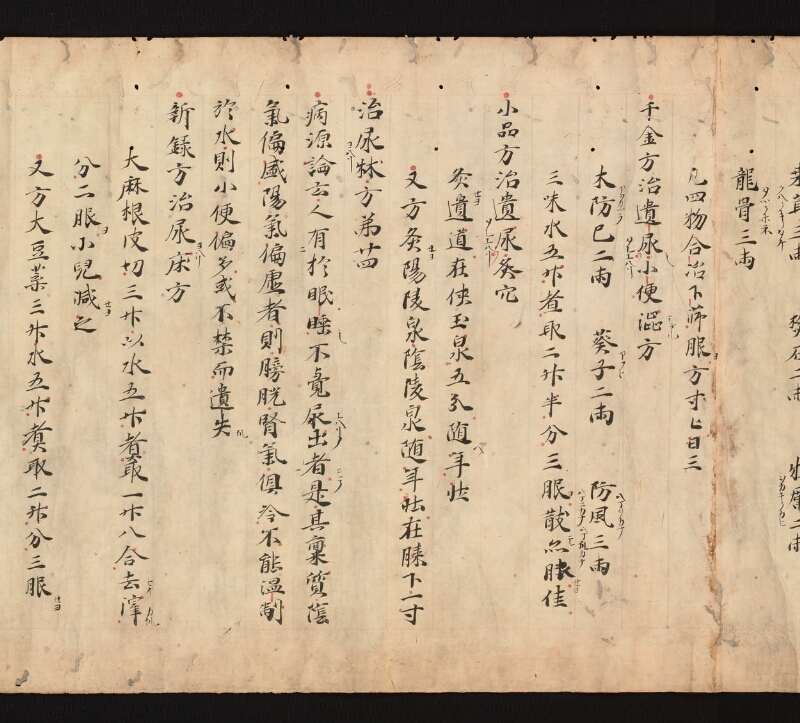 龍骨三両
凡四物合冶下篩服方寸匕日三
千金方治遺尿小便澁方
木防已二両 葵子二両 防風三両
三味水五升煮取二升半分三服散亦佳
小品方治遺尿灸穴
灸遺道在侠玉泉五寸随年壮
又方灸陽陵泉陰陵泉随年壮在膝下一寸
治尿牀方第廿四
病源論云人有於眠睡不覚尿出者是其稟質陰
氣偏盛陽氣偏虚者則膀胱腎氣倶冷不能温制
於水則小便偏多或不禁而遺失
新録方治尿床方
大麻根皮切三升以水五升煮取一升八合去滓
分二服小兒減之
又方大豆葉三升水五升煮取二升分三服